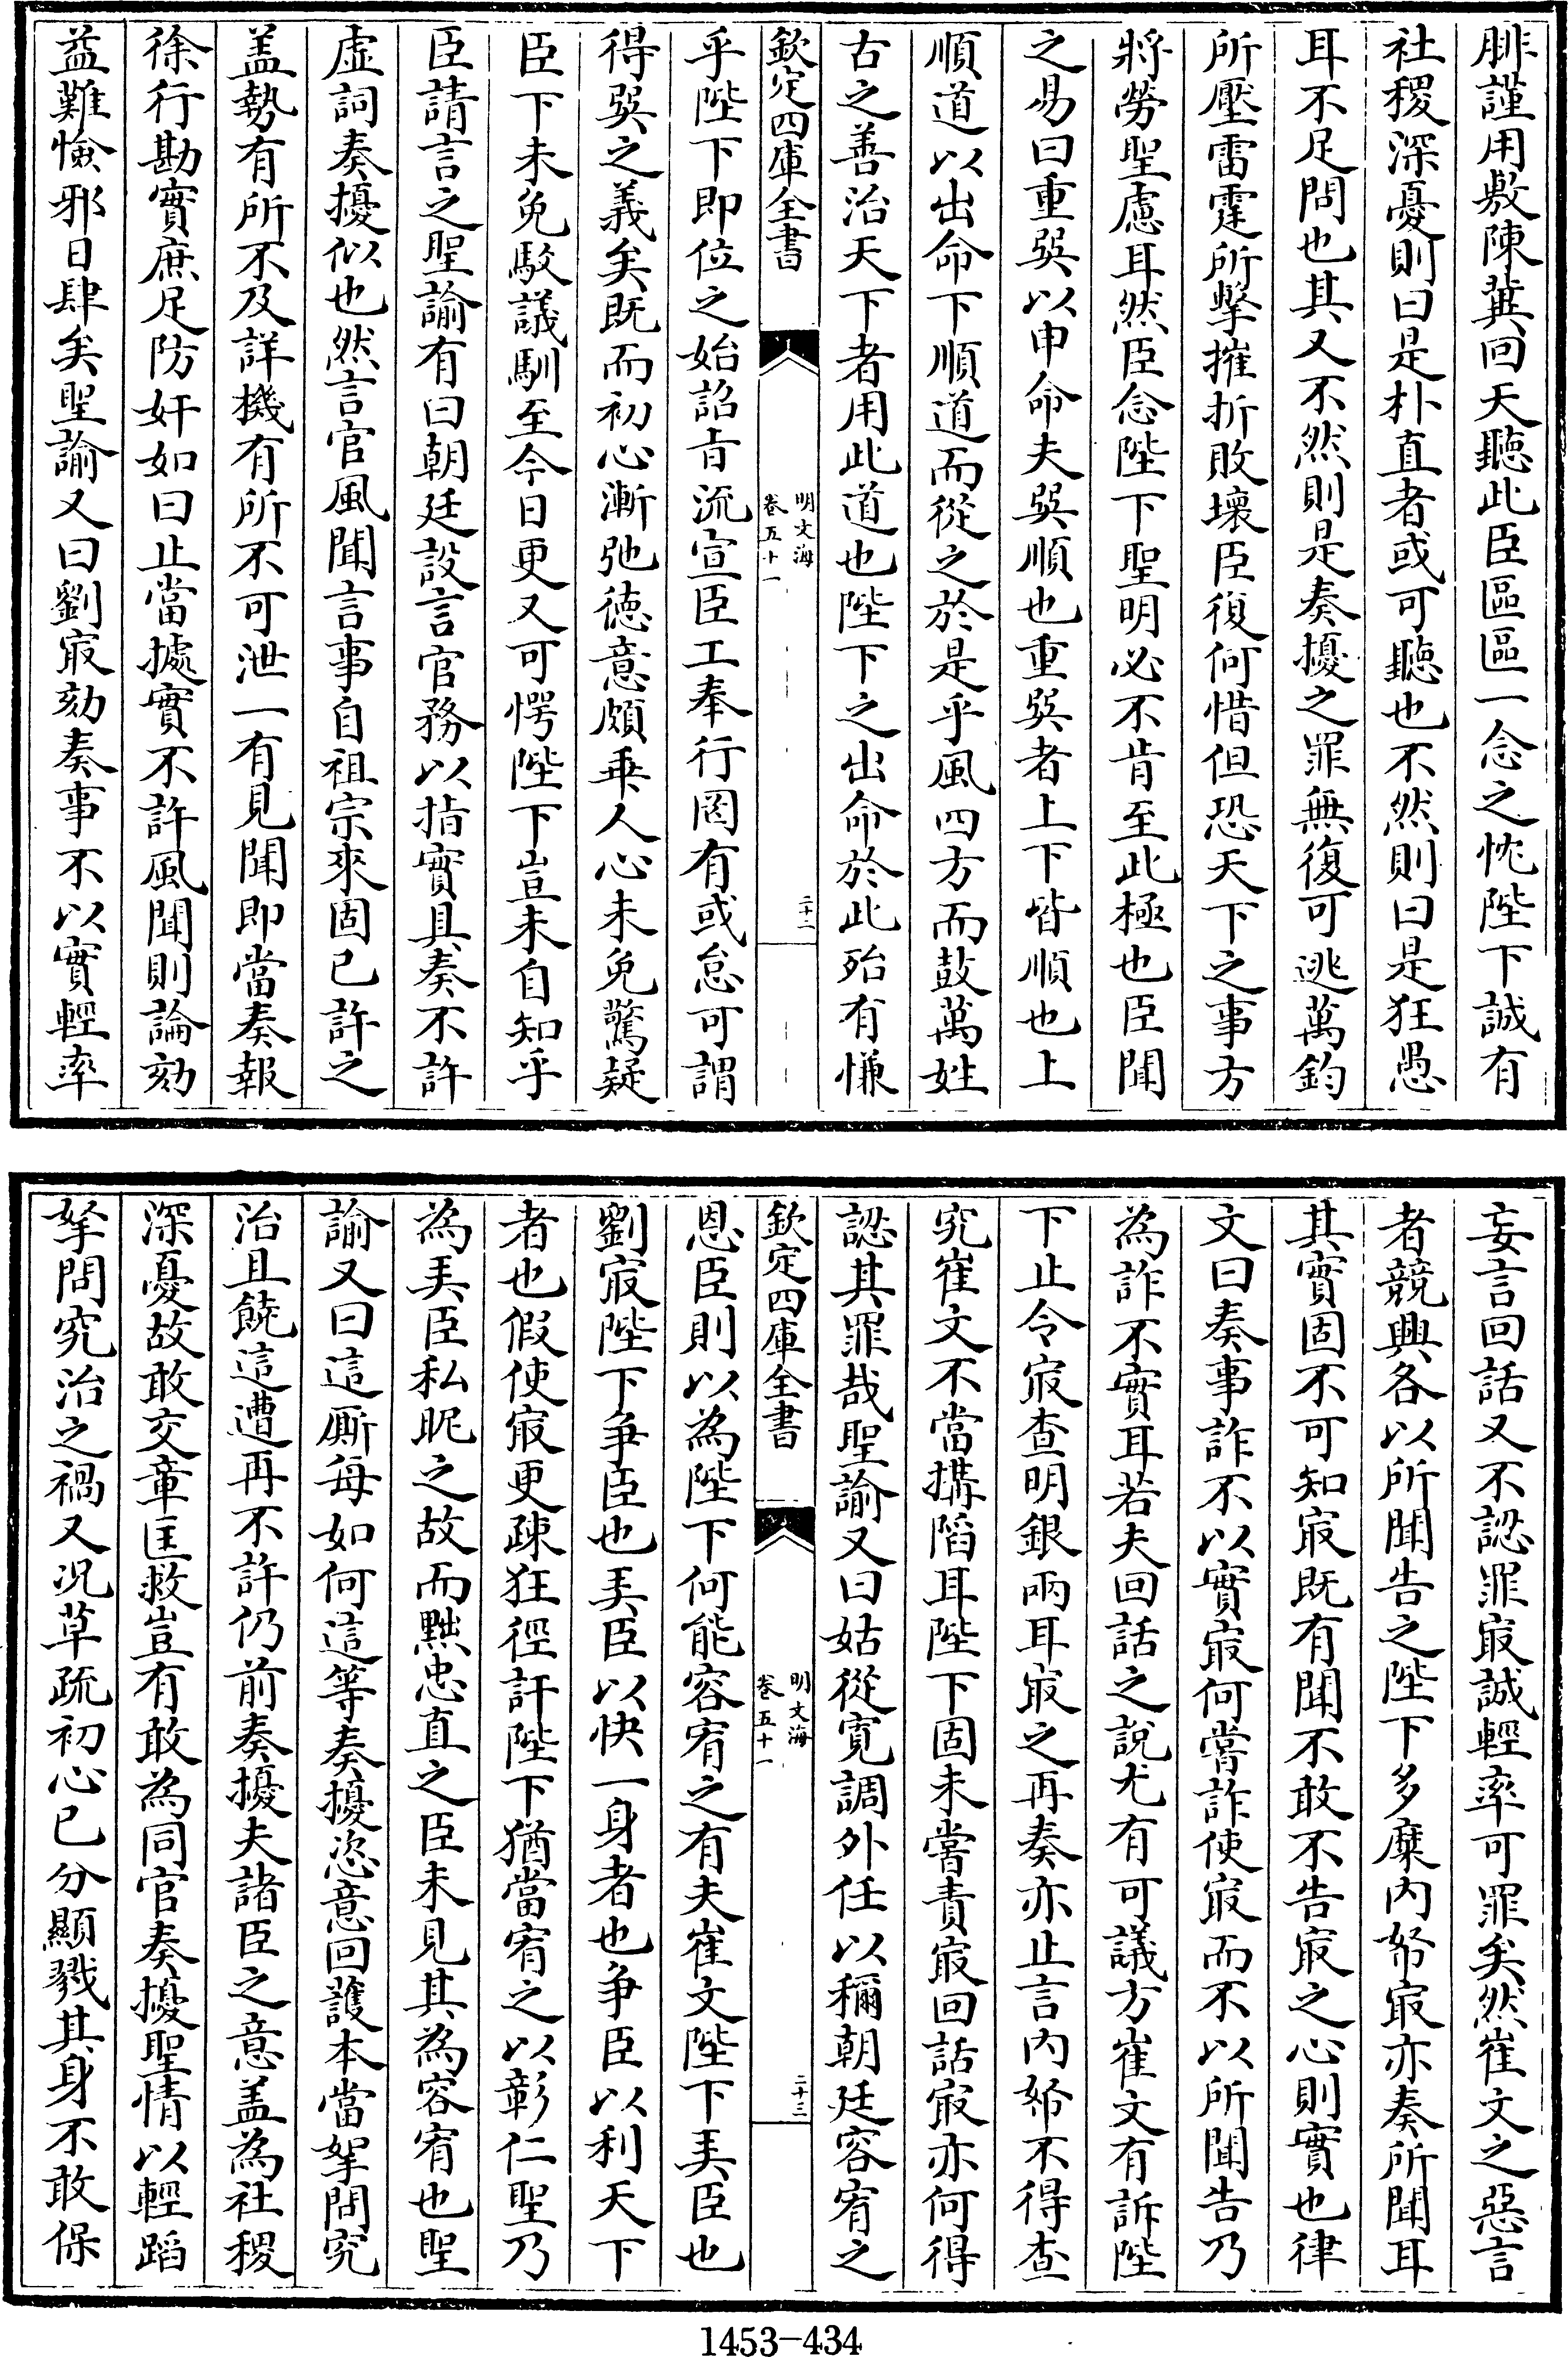 腓謹用敷陳冀回天聽此臣區區一念之忱陛下誠有
社稷深憂則曰是朴直者或可聽也不然則曰是狂愚
耳不足問也其又不然則是奏擾之罪無復可逃萬鈞
所壓雷霆所擊摧折敗壞臣復何惜但恐天下之事方
將勞聖慮耳然臣念陛下聖明必不肯至此極也臣聞
之易曰重巽以申命夫巽順也重巽者上下皆順也上
順道以出命下順道而從之於是乎風四方而鼓萬姓
古之善治天下者用此道也陛下之出命於此殆有慊
欽定四庫全書
明文海
卷五十一
二十二
乎陛下即位之始詔旨流宣臣工奉行罔有或怠可謂
得巽之義矣既而初心漸弛德意頗乖人心未免驚疑
臣下未免駁議馴至今日更又可愕陛下豈未自知乎
臣請言之聖諭有曰朝廷設言官務以指實具奏不許
虛詞奏擾似也然言官風聞言事自祖宗來固已許之
盖勢有所不及詳機有所不可泄一有見聞即當奏報
徐行勘實庶足防奸如曰止當據實不許風聞則論劾
益難憸邪日肆矣聖諭又曰劉㝡劾奏事不以實輕率
妄言回話又不認罪㝡誠輕率可罪矣然崔文之惡言
者競興各以所聞告之陛下多糜内帑㝡亦奏所聞耳
其實固不可知㝡既有聞不敢不告㝡之心則實也律
文曰奏事詐不以實㝡何嘗詐使㝡而不以所聞告乃
為詐不實耳若夫回話之說尤有可議方崔文有訴陛
下止令㝡查明銀兩耳㝡之再奏亦止言内帑不得查
究崔文不當搆陷耳陛下固未嘗責㝡回話㝡亦何得
認其罪哉聖諭又曰姑從寛調外任以稱朝廷容宥之
欽定四庫全書
明文海
卷五十一
二十三
恩臣則以為陛下何能容宥之有夫崔文陛下美臣也
劉㝡陛下爭臣也美臣以快一身者也爭臣以利天下
者也假使㝡更疎狂徑訐陛下猶當宥之以彰仁聖乃
為美臣私昵之故而黜忠直之臣未見其為容宥也聖
諭又曰這厮每如何這等奏擾恣意回護本當拏問究
治且饒這遭再不許仍前奏擾夫諸臣之意盖為社稷
深憂故敢交章匡救豈有敢為同官奏擾聖情以輕蹈
拏問究治之禍又況草疏初心已分顯戮其身不敢保
1453-434